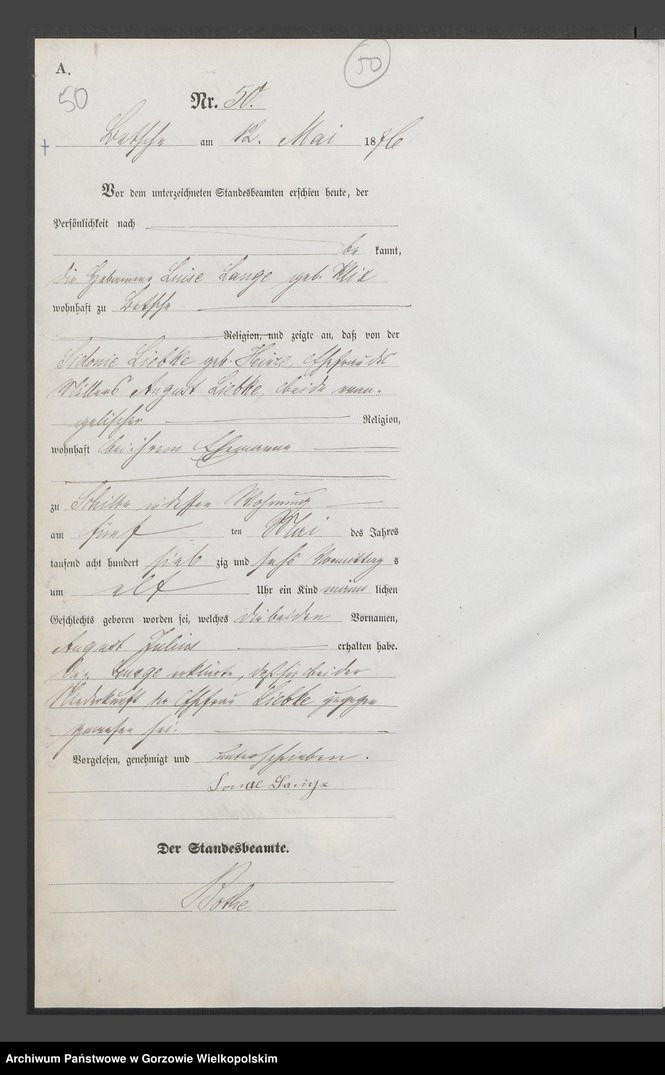 A.
50
50
Nr. 50.
Betsche am 12. Mai 1876
Vor dem unterzeichneten Standesbeamten erschien heute, der
Persönlichkeit nach
be kannt,
die Hebamme Luise Lange geb. Klix
wohnhaft zu Betsche
Religion, und zeigte an, daß von der
Sidonie Liebke geb. Heinze, Ehefrau des
Müllers August Liebke, beide evan-
gelischer Religion,
wohnhaft bei ihrem Ehemanne
zu Schilln in dessen Wohnung
am fünf ten Mai des Jahres
tausend acht hundert sieb zig und sechs Vormittag s
um elf Uhr ein Kind männ lichen
Geschlechts geboren worden sei, welches die beiden Vornamen,
August Julius erhalten habe.
Die Lange erklärte, daß sie bei der
Niederkunft der Ehefrau Liebke zugegen
gewesen sei.
Vorgelesen, genehmigt und unterschrieben.
Lange
Der Standesbeamte.
Bothe
Archiwum Państwowe w Gorzowie Wielkopolskim